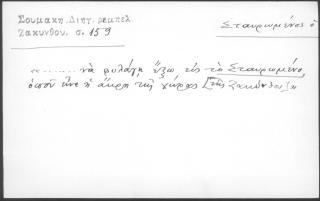 Σουμάκη. Διήγ. ρεμπελ.
Ζακύνθου. σ. 159
Σταυρωμένος ὁ
«........ νὰ φυλάγῃ ἔξω εἰς τὸ Σταυρωμένο,
ὁποῦ εἶνε ἡ ἄκρη τῆς χώρας [τῆς Ζακύνθου]»